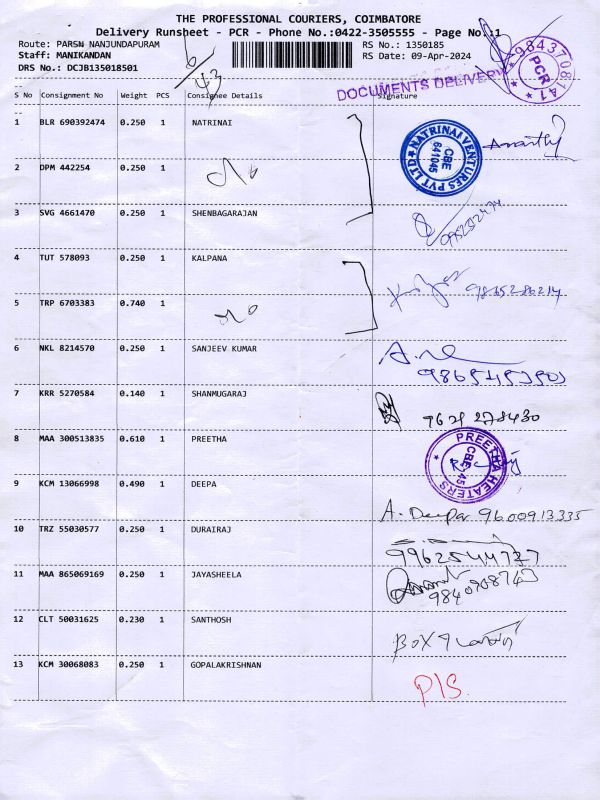 THE PROFESSIONAL COURIERS, COIMBATORE
Delivery Runsheet - PCR - Phone No.:0422-3505555 - Page No.:1
Route: PARSN NANJUNDAPURAM
RS No.: 1350185
Staff: MANIKANDAN
RS Date: 09-Apr-2024
DRS No.: DCJB135018501
6/43
DOCUMENTS DELIVERY
PCR
S No Consignment No Weight PCS Consignee Details Signature
1 BLR 690392474 0.250 1 NATRINAI
NATRINAI VENTURES PVT LTD
CBE
641045
2 DPM 442254 0.250 1
3 SVG 4661470 0.250 1 SHENBAGARAJAN
4 TUT 578093 0.250 1 KALPANA
9865286214
5 TRP 6703383 0.740 1
6 NKL 8214570 0.250 1 SANJEEV KUMAR
7 KRR 5270584 0.140 1 SHANMUGARAJ
8 MAA 300513835 0.610 1 PREETHA
PREETHA HEATERS
CBE-45
9 KCM 13066998 0.490 1 DEEPA
A. Deepa 9600913335
10 TRZ 55030577 0.250 1 DURAIRAJ
9962544737
11 MAA 865069169 0.250 1 JAYASHEELA
12 CLT 50031625 0.230 1 SANTHOSH
BOX
13 KCM 30068083 0.250 1 GOPALAKRISHNAN
P/S.